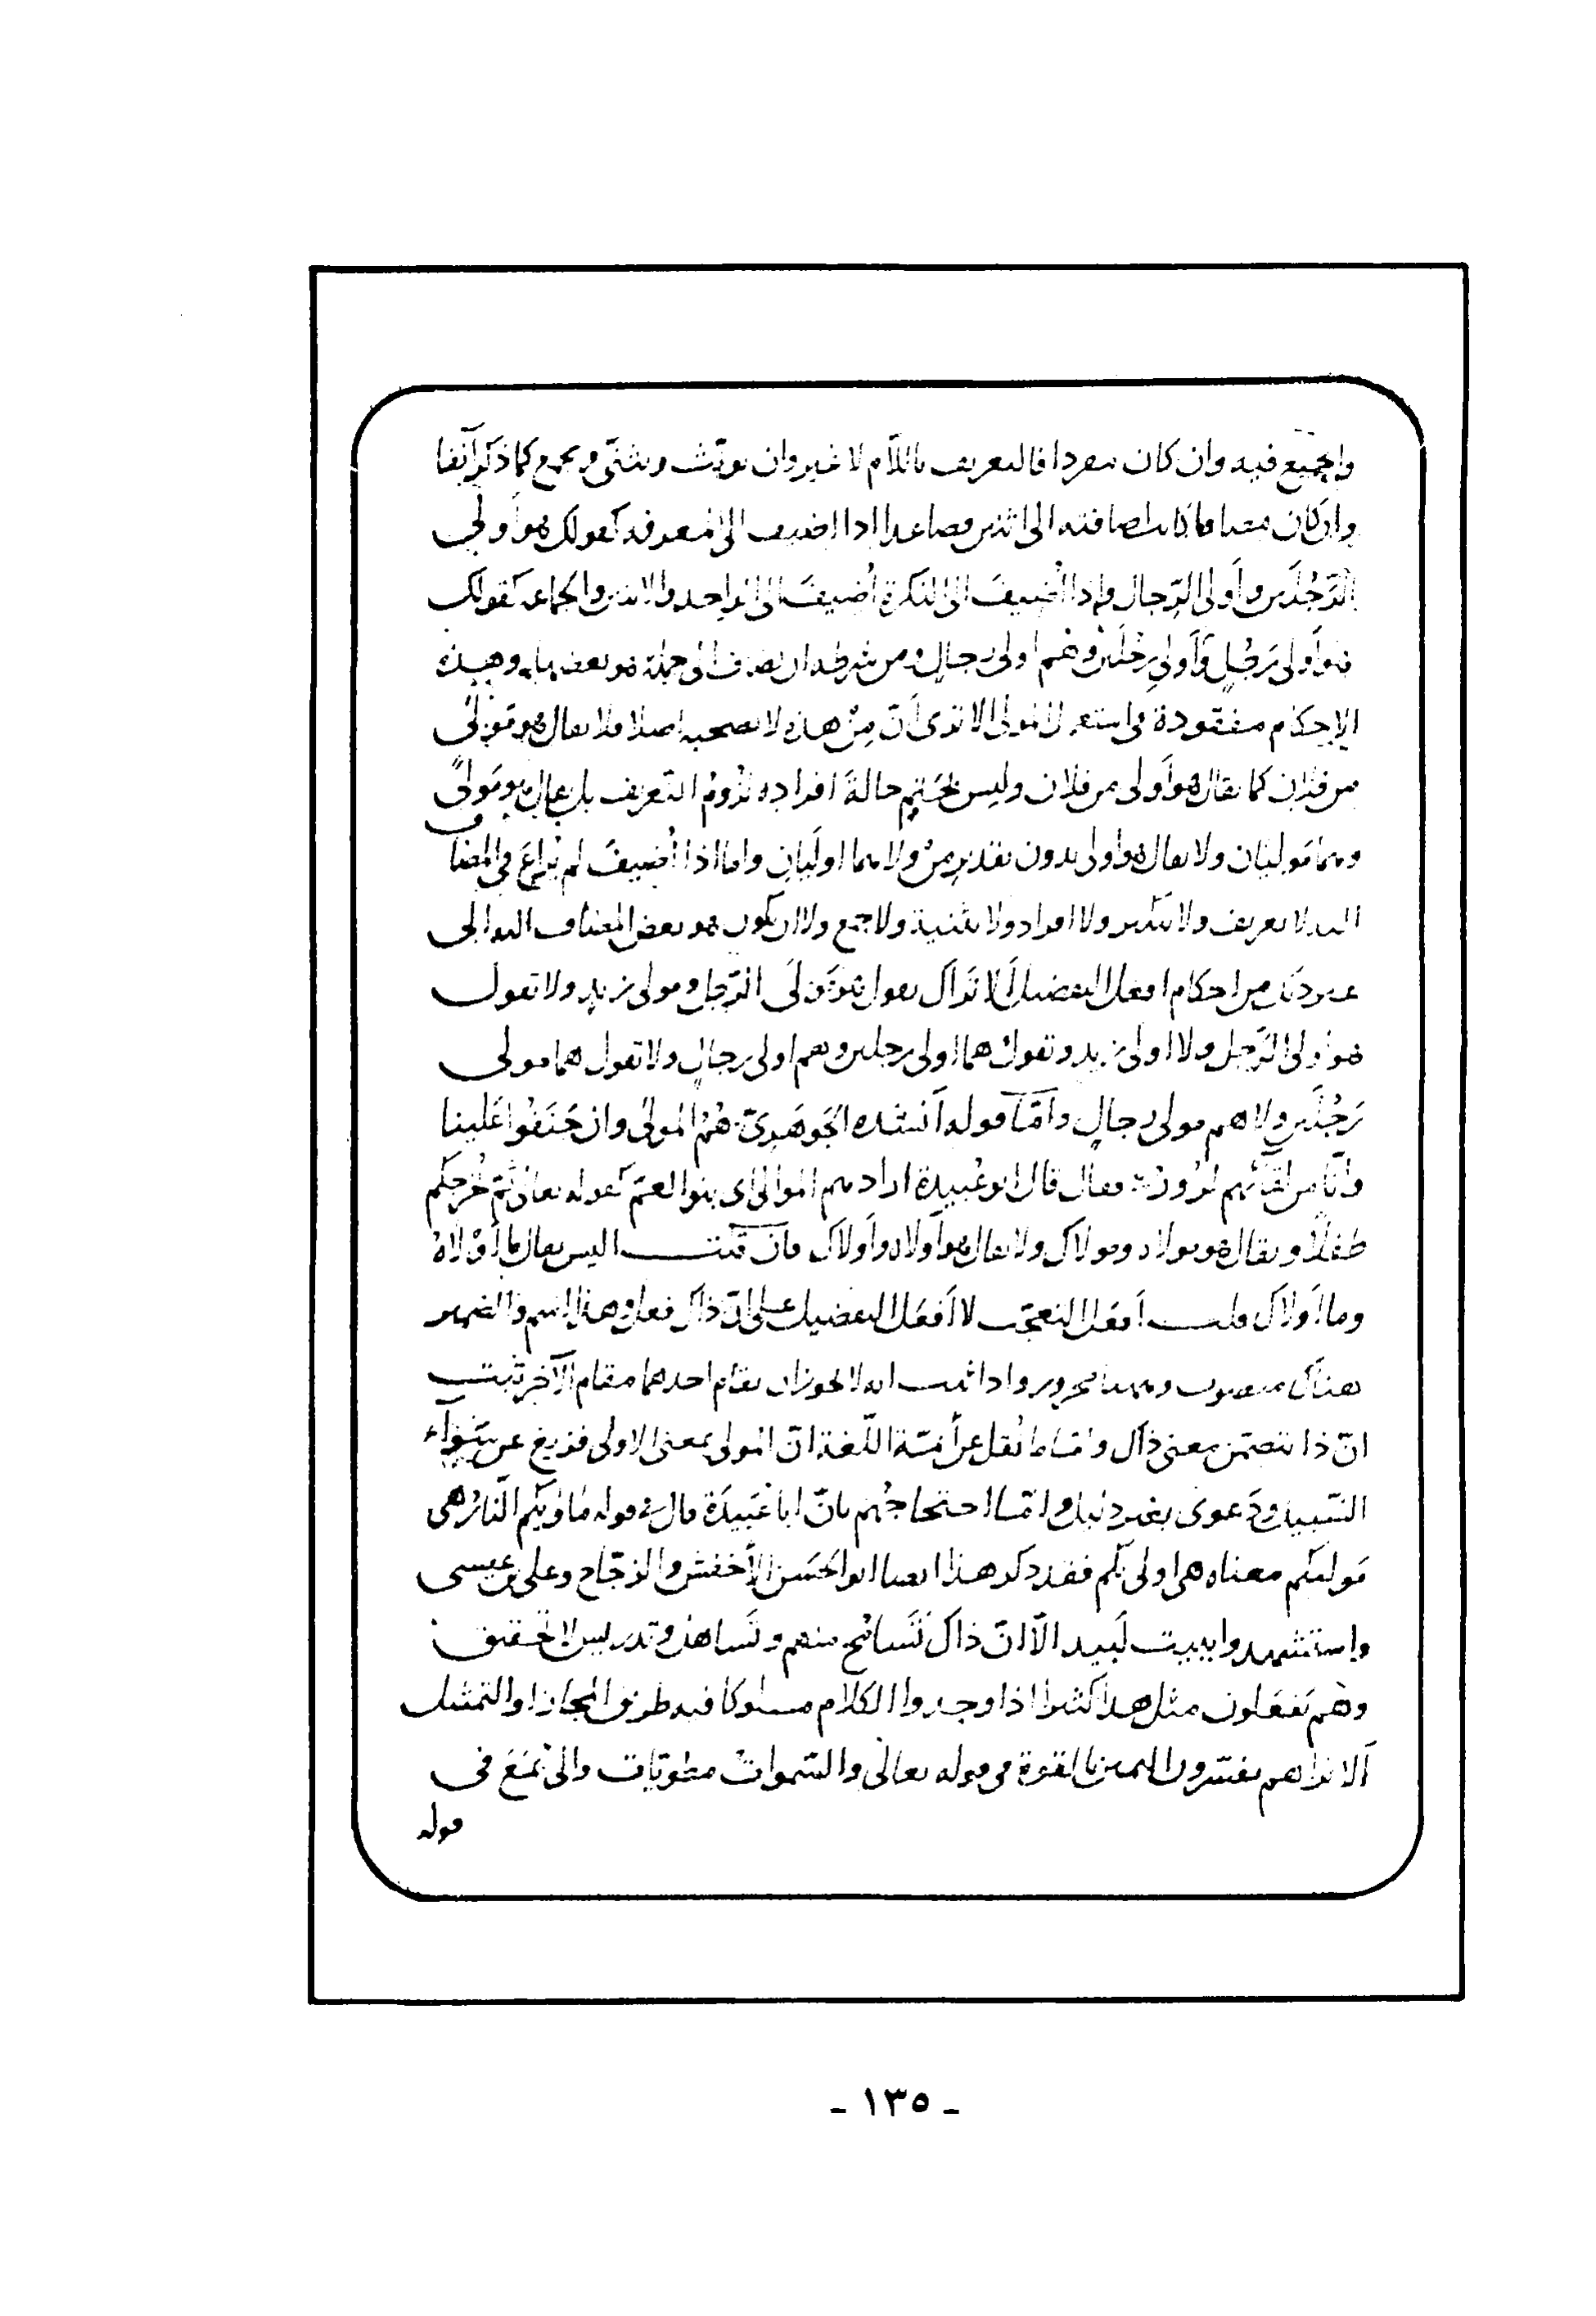 والجميع فيه وان كان مفردا فالتعريف باللّام لا غير وان يؤنّث ويثنّى ويجمع كما ذكر آنفا
وان كان مضافا كانت اضافته الى اثنين فصاعدا اذا اضيف الى المعرفة كقولك هو أولى
الرّجُلَين وأولى الرّجال واذا أُضيفَ الى النكرة أُضيفَ الى الواحد والاثنين والجماعة كقولك
هو أولى رَجُلٍ وأولى رجُلَين وهم أولى رجالٍ ومن شرطه ان يضاف الى جملة هو بعضها وهذه
الاحكام مفقودة في استعمال المولى الا ترى أنّ مِنْ هذه لا تصحبه اصلا فلا يقال هو مَوْلىً
من فلان كما يقال هو أولى من فلان وليس بحَتْمٍ حالةَ افراده لزومُ التعريف بل يقال هو مَولىً
وهما مَوليان ولا يقال هو اولى بدون تقدير مِنْ ولا هما اوليان واما اذا أُضيفَ لم يُراعَ في المضاف
اليه لا تعريف ولا تنكير ولا افراد ولا تثنية ولا جمع ولا ان يكون هو بعض المضاف اليه الى
غير ذلك من احكام افعل التفضيل ألا تراك تقول هو مَولَى الرّجل ومولى زيد ولا تقول
هو اولى الرّجل ولا اولى زيد وتقول هما اولى رجلين وهم اولى رجالٍ ولا تقول هما مولى
رَجُلَين ولا هم مولى رجالٍ وأمّا قوله أنشده الجَوهَرِيّ هُمُ المولى وان جَنَفُوا عَلينا
وانّا من لقائهم لزُورُ فقال قال ابو عُبيدة اراد بهم الموالى اى بنو العمّ كقوله تعالى ثمّ نُخرجكم
طفلًا ويقال هو مولاه ومولاك ولا يقال هو أولاه وأولاك فان قلت اليس يقال ما أوْلاهُ
وما أولاك قلت أفعَل التعجّب لا أفعَل التفضيل على انّ ذاك فعل وهذا اسم والضمير
هناك منصوب وههنا مجرور واذا ثبت انه لا يجوز ان يقام احدهما مقام الآخر ثبت
انّ ذا يتضمن معنى ذاك وامّا ما نُقل عن أئمّة اللّغة انّ المولى بمعنى الاولى فزيغ عن سَواء
السّبيل ودَعوى بغير دليل وامّا احتجاجُهم بانّ ابا عُبَيدَة قال في قوله مَأويكم النّارُ هى
مَوليكم معناه هى اولى بكم فقد ذكر هذا ايضا ابو الحَسَن الأخفش والزجّاج وعلى بن عيسى
واستشهدوا ببيت لَبيد الّا انّ ذاك تَسامُح منهم وتَساهل وتدريس لا تحقيق
وهُم يَفعَلون مثل هذا كثيرا اذا وجدوا الكلام مسلوكا فيه طريق المجاز او التمثيل
ألا تراهم يفسّرون اليمين بالقوّة في قوله تعالى والسّموات مطويّات والى يَمنَعَ في
قوله
ـ ١٣٥ ـ